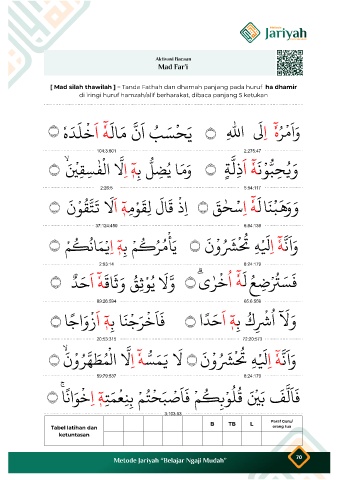 Metode
Jariyah
Aktivasi Bacaan
Mad Far'i
[ Mad silah thawilah ] – Tanda Fathah dan dhamah panjang pada huruf ha dhamir
di iringi huruf hamzah/alif berharakat, dibaca panjang 5 ketukan
وَاَمْرُهٗٓ اِلَى اللّٰهِ ۝ يَحْسَبُ اَنَّ مَالَهٗٓ اَخْلَدَهٗ ۝
2:275:47
وَيُحِبُّوْنَهٗٓ اَذِلَّةٍ ۝ وَمَا يُضِلُّ بِهٖٓ اِلَّا الْفٰسِقِيْنَۙ ۝
5:54:117
وَوَهَبْنَا لَهٗٓ اِسْحٰقَ ۝ اِذْ قَالَ لِقَوْمِهٖٓ اَلَا تَتَّقُوْنَ ۝
وَاَنَّهٗٓ اِلَيْهِ تُحْشَرُوْنَ ۝ يَأْمُرُكُمْ بِهٖٓ اِيْمَانُكُمْ ۝
8:24:179 2:93:14
فَسَتُرْضِعُ لَهٗٓ اُخْرٰىۗ ۝ وَّلَا يُوْثِقُ وَثَاقَهٗٓ اَحَدٌ ۝
65:6:558 89:26:594
وَلَآ اُشْرِكُ بِهٖٓ اَحَدًا ۝ فَاَخْرَجْنَا بِهٖٓ اَزْوَاجًا ۝
72:20:573 20:53:315
وَاَنَّهٗٓ اِلَيْهِ تُحْشَرُوْنَ ۝ لَا يَمَسُّهٗٓ اِلَّا الْمُطَهَّرُوْنَۙ ۝
8:24:179 56:79:537
فَاَلَّفَ بَيْنَ قُلُوْبِكُمْ فَاَصْبَحْتُمْ بِنِعْمَتِهٖٓ اِخْوَانًاۚ ۝
3:103:63
Tabel latihan dan
ketuntasan
B TB L Paraf Guru/
orang tua
Metode Jariyah "Belajar Ngaji Mudah"
70